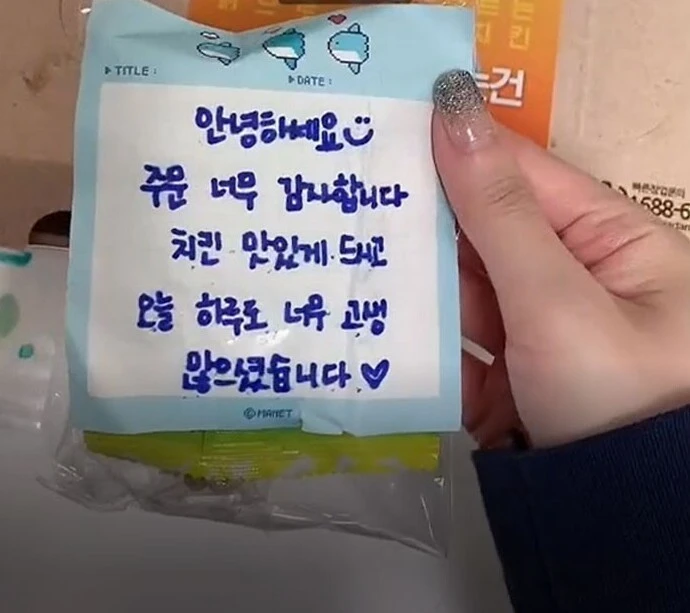 치킨
는건
▶TITLE :
▶DATE :
안녕하세요
주문 너무 감사합니다
치킨 맛있게 드시고
오늘 하루도 너무 고생
많으셨습니다 ♥
©MAMET
빠른창업문의
1588-6